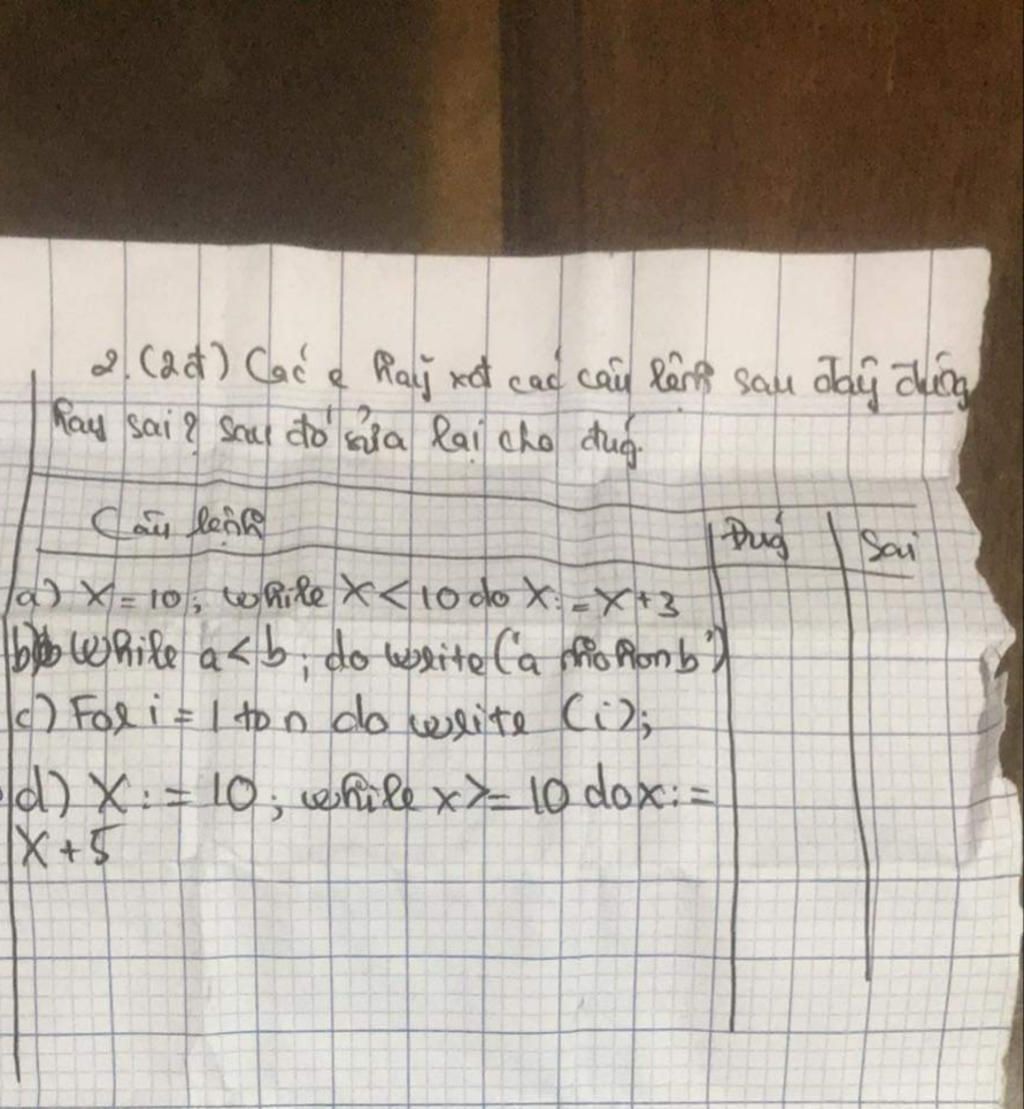 2. (2đ) Các e hãy xét các câu lệnh sau đây đúng
hay sai? sau đó sửa lại cho đúg.
Câu lệnh Đúg Sai
a) X = 10; while X < 10 do X := X + 3
b) While a < b; do write ('a nhỏ hơn b')
c) For i = 1 to n do write (i);
d) X := 10; while x >= 10 do x :=
X + 5